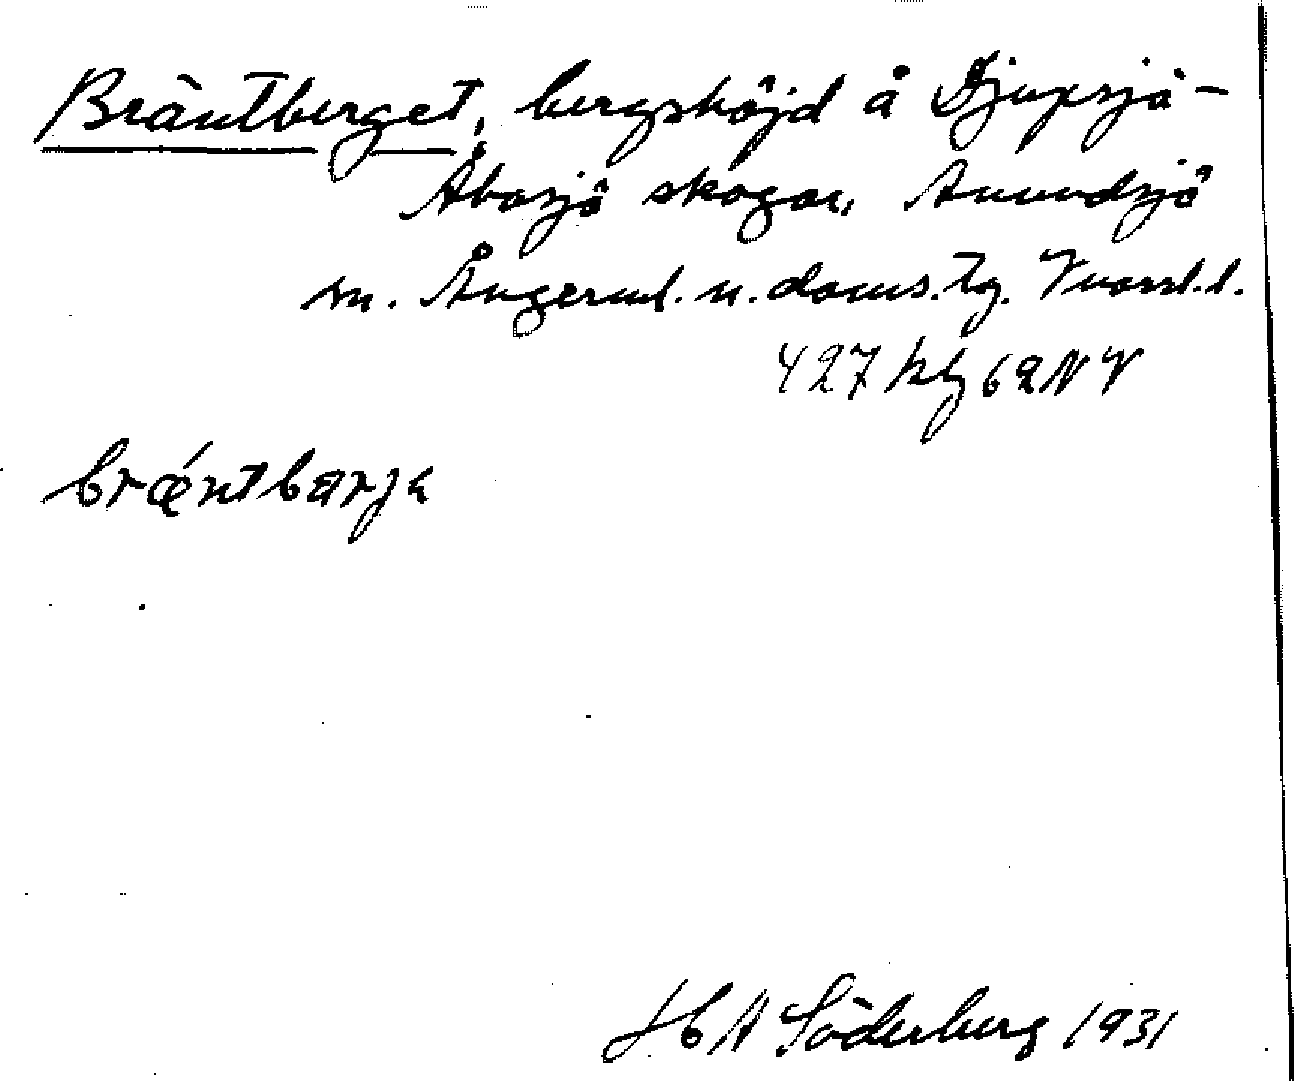 Bräntberget, bergshöjd å Djupsjö-
Åbosjö skogar, Anundsjö
sn. Ångerml. n. doms. tg. Vnorrl. l.
427 kbl 62 NV
bræ̀ntbarja
H A Söderberg 1931